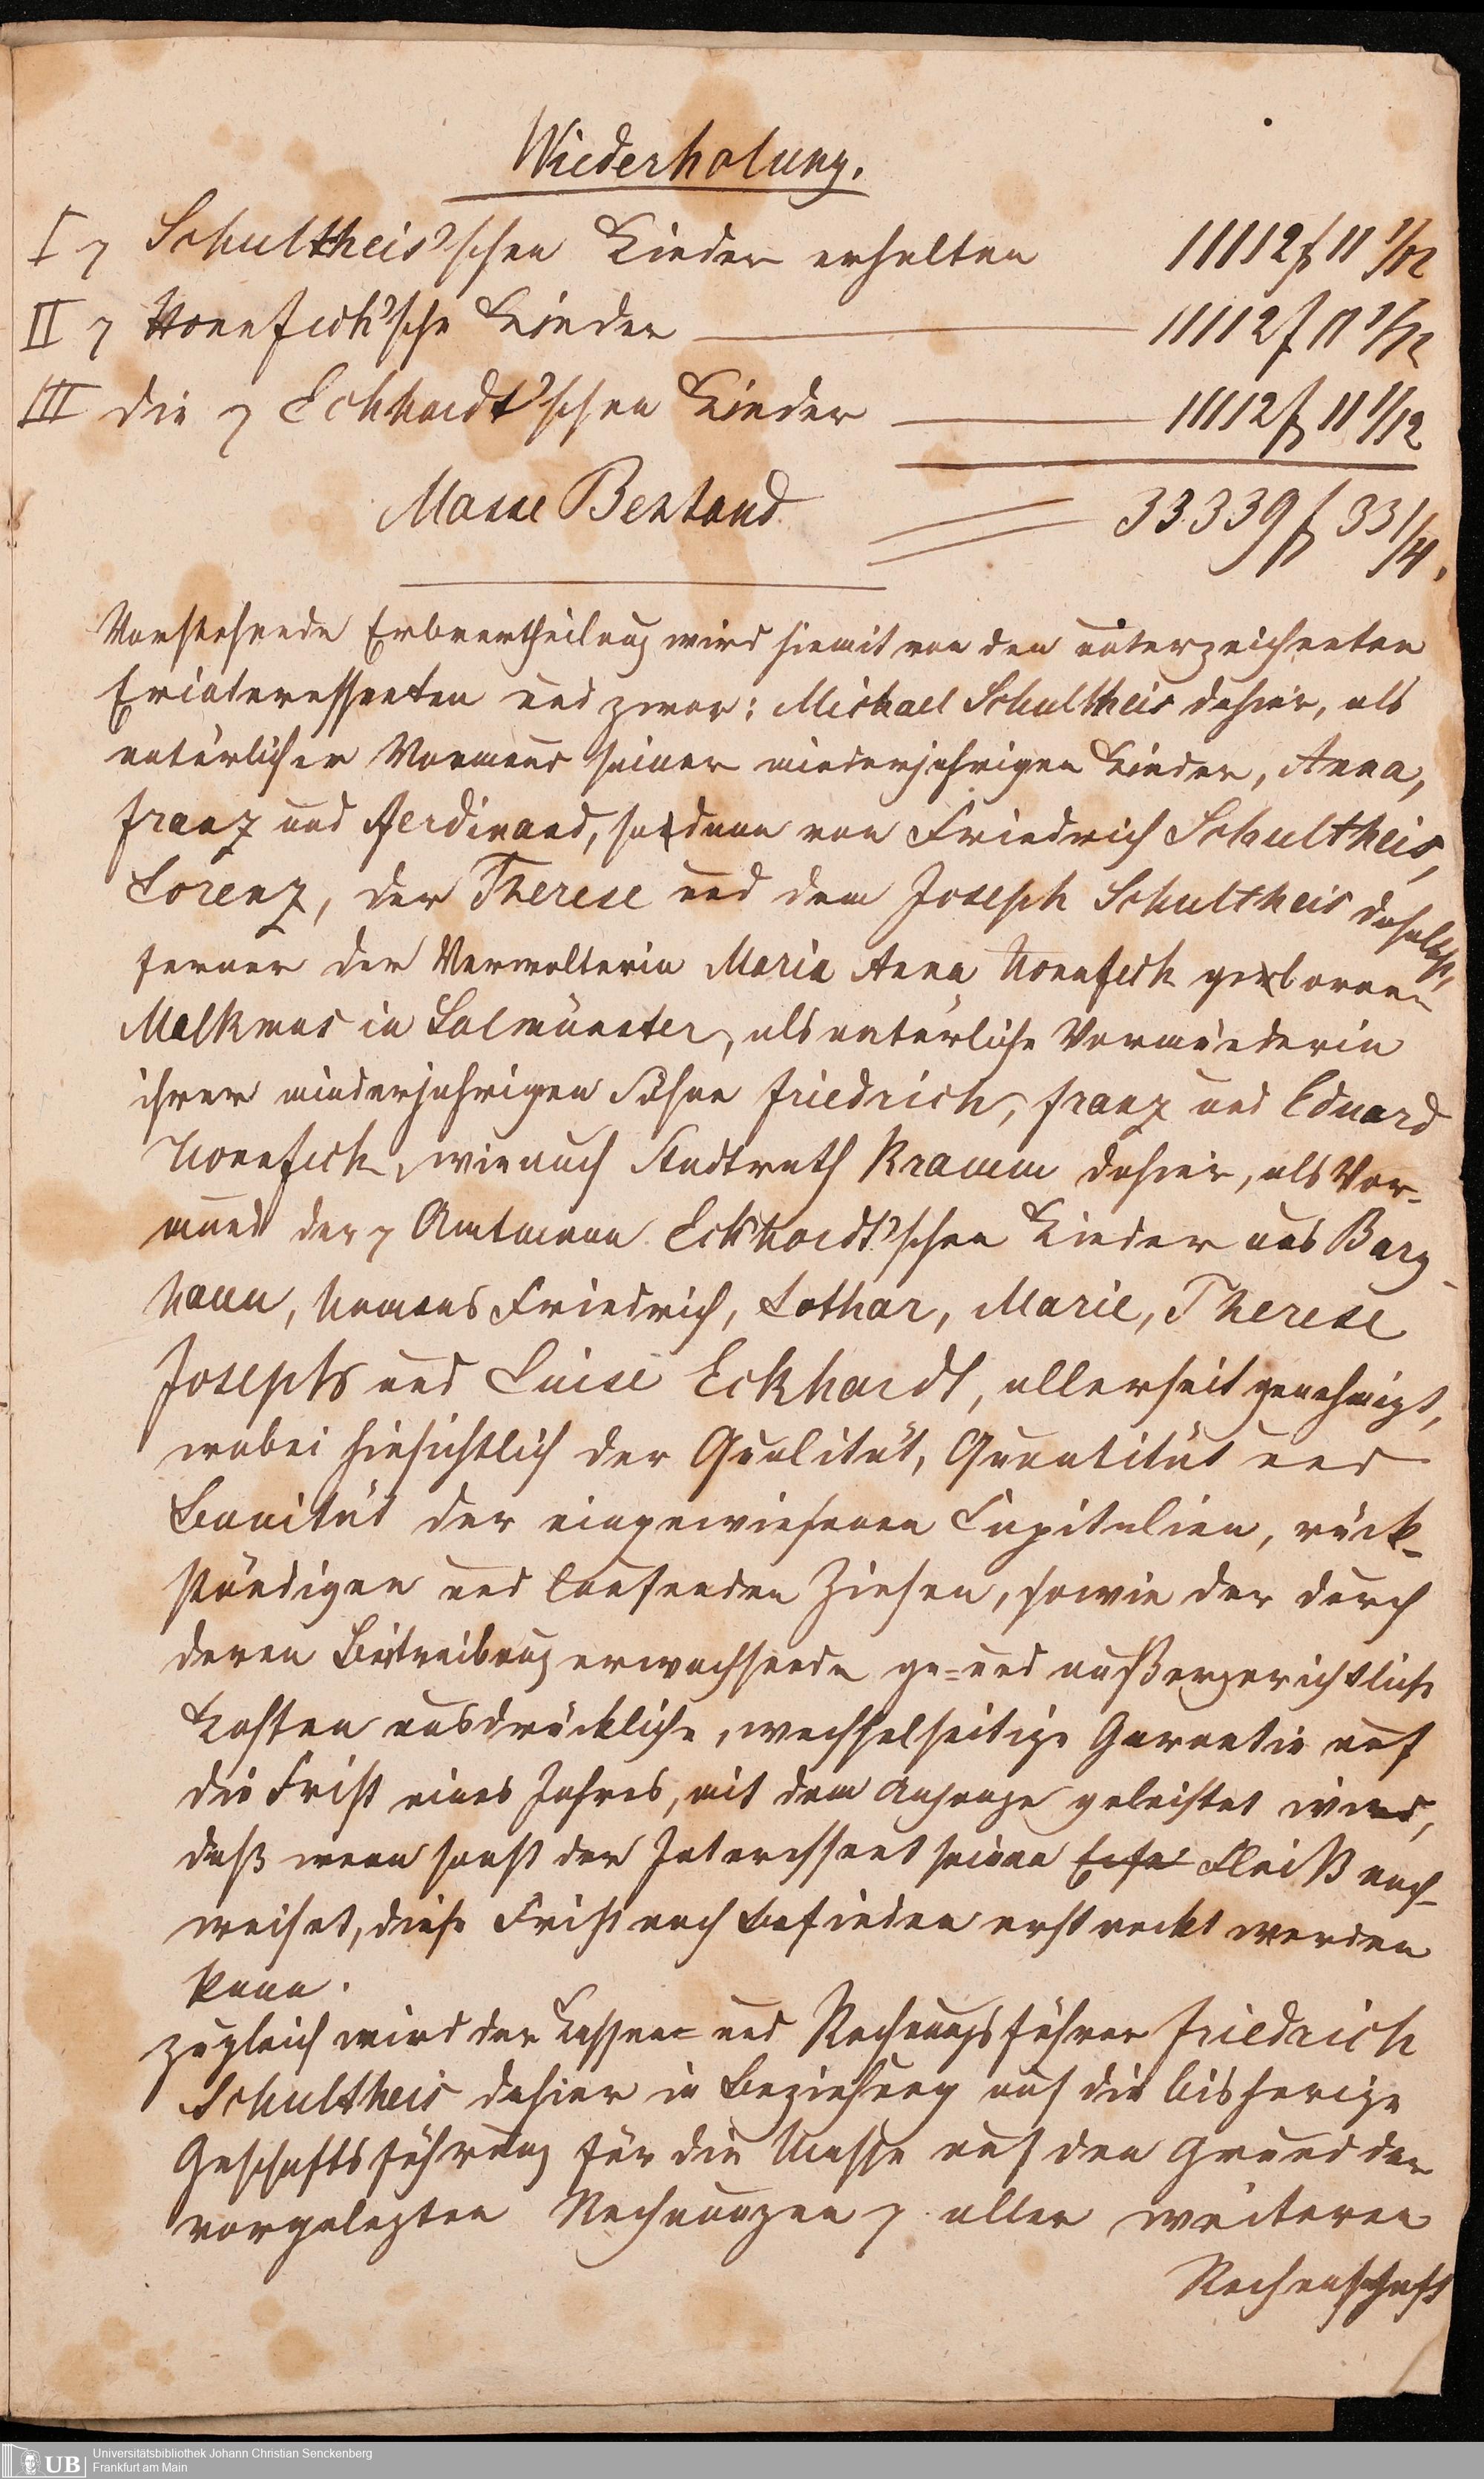 Wiederholung.
I ꝛ Schultheis'schen Kinder erhalten 11112 f 11 1/12
II ꝛ Nonnfich'sche Kinder 11112 f 11 1/12
III die ꝛ Eckhardt'schen Kinder 11112 f 11 1/12
Masse Bestand 33339 f 33 1/4.
Vorstehende Erbvertheilung wird hiemit von den unterzeichneten
Erinteressenten und zwar: Michael Schultheis dahier, als
natürlicher Vormund seiner minderjahrigen Kinder, Anna,
Franz und Ferdinand, sodann von Friedrich Schultheis,
Lorenz, der Therese und dem Joseph Schultheis daselbst,
ferner der Verwalterin Maria Anna Nonnfich geborenen
Malkmus in Salmünster, als natürliche Vormünderin
ihrer minderjahrigen Söhne Friedrich, Franz und Eduard
Nonnfich, wie auch Stadtrath Kramm dahier, als Vor-
mund der ꝛ Amtmann Eckhardt'schen Kinder aus Burg-
haun, Namens Friedrich, Lothar, Marie, Therese
Josepha und Luise Eckhardt, allerseit genehmigt,
wobei hinsichtlich der Qualität, Quantität und
Bonität der eingewiesenen Capitalien, rück-
ständigen und laufenden Zinsen, sowie der durch
deren Beitreibung erwachsende ge- und außergerichtliche
Kosten ausdrückliche, wechselseitige Garantie auf
die Frist eines Jahres, mit dem Anhange geleistet wird,
daß wenn sonst der Interessent seinen Fleiß nach-
weiset, diese Frist nach Befinden erstreckt werden
kann.
Zugleich wird der Kassen- und Rechnungsführer Friedrich
Schultheis dahier in Beziehung auf die bisherige
Geschaftsführung für die Masse auf den Grund der
vorgelegten Rechnungen ꝛ aller weiteren
Rechenschaft
Universitätsbibliothek Johann Christian Senckenberg
UB
Frankfurt am Main